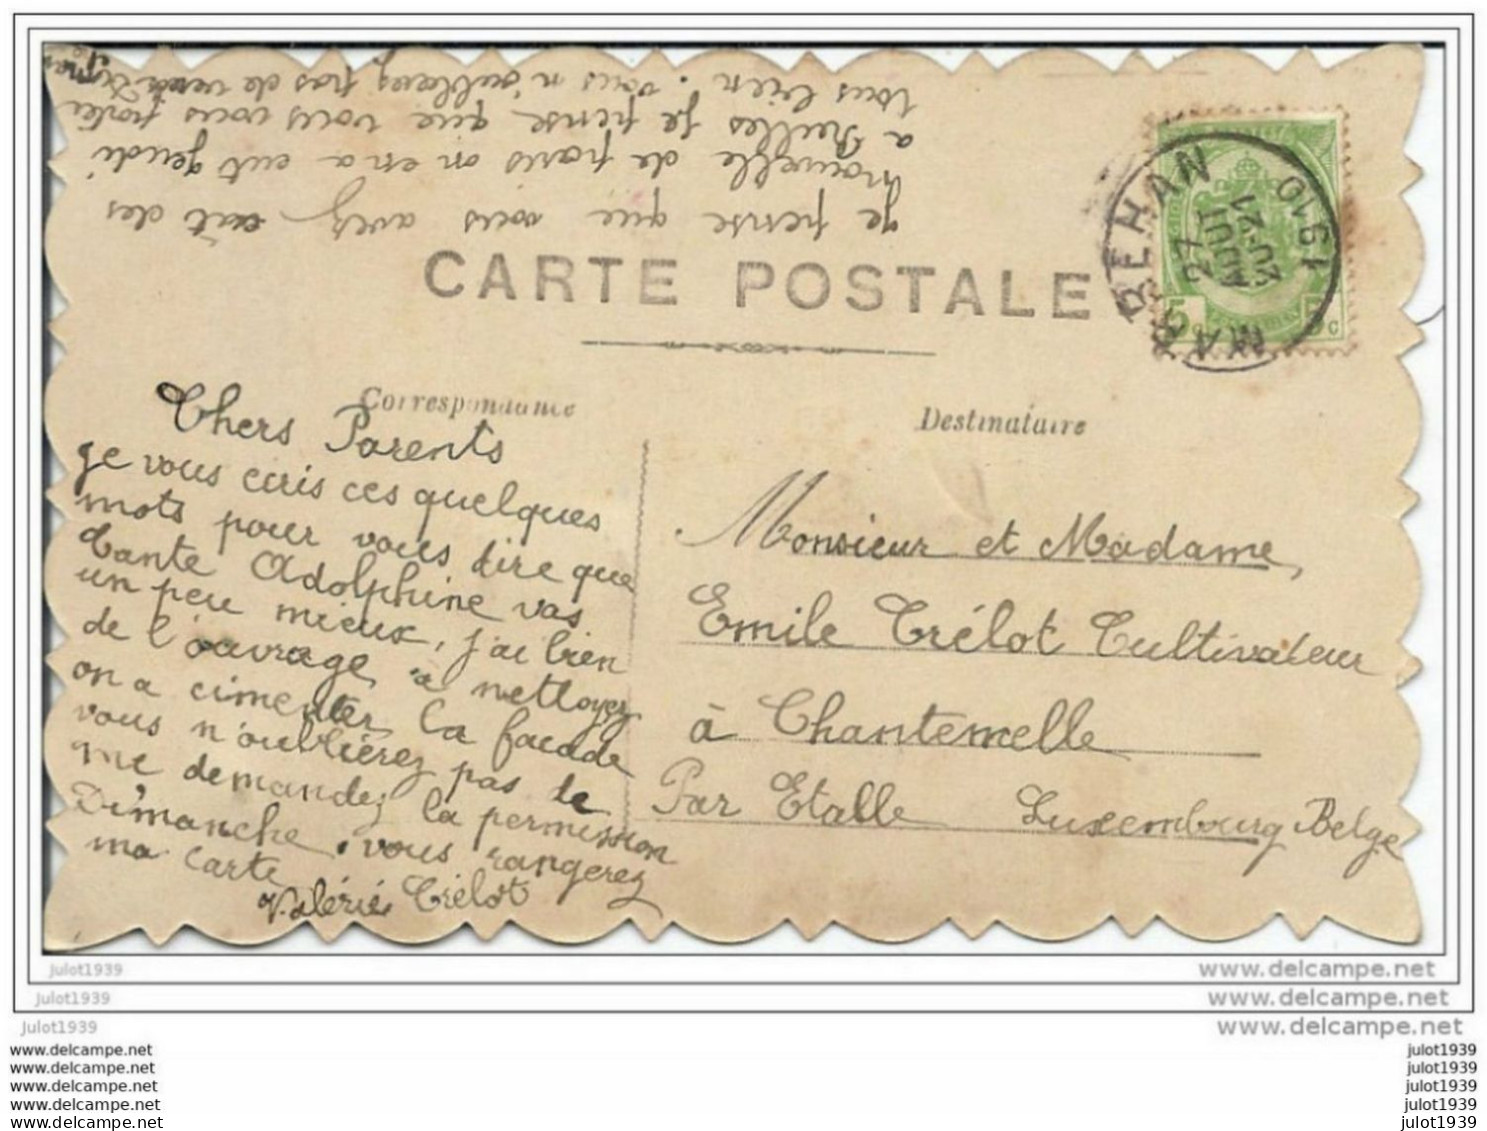 je pense que vous avez eût des
nouvelle de paris on en a eut jeudi
a Neilles je pense que vous vous portez
tous bien. vous n'oublierez pas de
CARTE POSTALE
MARBEHAN
27
AOUT
20-21
1910
5c
5c
Correspondance
Destinataire
Chers Parents
je vous ecris ces quelques
mots pour vous dire que
tante Adolphine vas
un peu mieux, j'ai bien
de l'ouvrage à nettoyez
on a cimenter la facade
vous n'oublièrez pas de
me demandez la permission
Dimanche. vous rangerez
ma carte
Valérie Trélot
Monsieur et Madame,
Emile Trélot Cultivateur
à Chantemelle
Par Etalle Luxembourg Belge
julot1939
www.delcampe.net
julot1939
www.delcampe.net
julot1939
www.delcampe.net
www.delcampe.net
julot1939
www.delcampe.net
julot1939
www.delcampe.net
julot1939
www.delcampe.net
julot1939
www.delcampe.net
julot1939